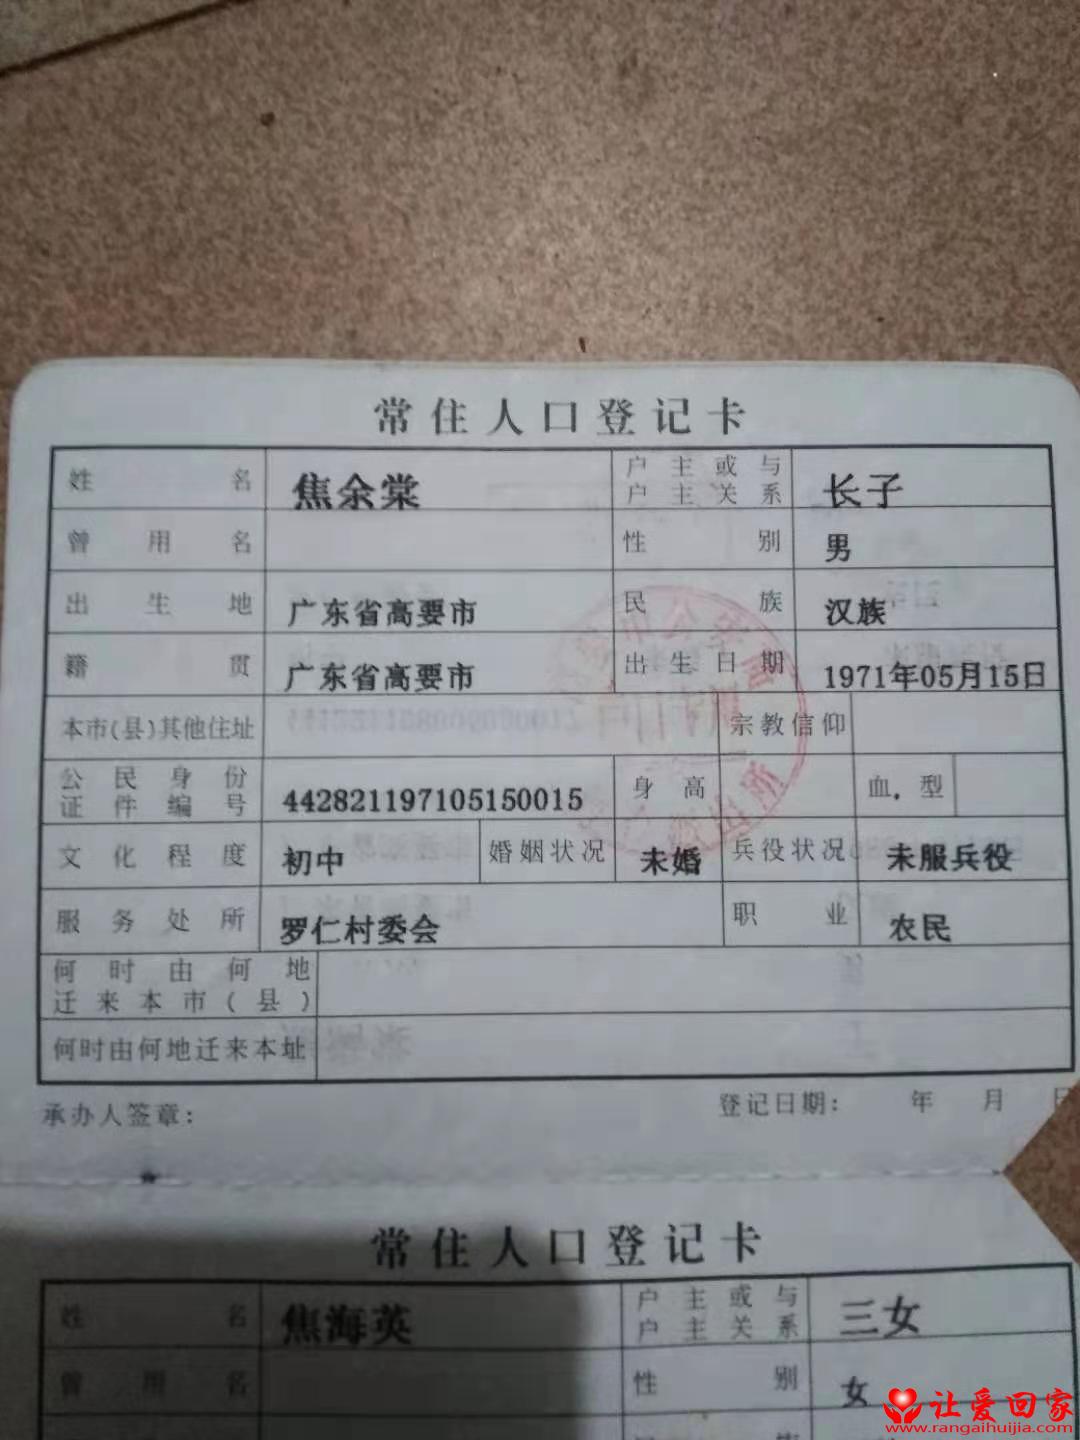 常住人口登记卡
姓名 焦余棠 户主或与户主关系 长子
曾用名 性别 男
出生地 广东省高要市 民族 汉族
籍贯 广东省高要市 出生日期 1971年05月15日
本市(县)其他住址 宗教信仰
公民身份证件编号 442821197105150015 身高 血型
文化程度 初中 婚姻状况 未婚 兵役状况 未服兵役
服务处所 罗仁村委会 职业 农民
何时由何地迁来本市(县)
何时由何地迁来本址
承办人签章： 登记日期： 年 月 日
常住人口登记卡
姓名 焦海英 户主或与户主关系 三女
曾用名 性别 女
让爱回家
www.rangaihuijia.com